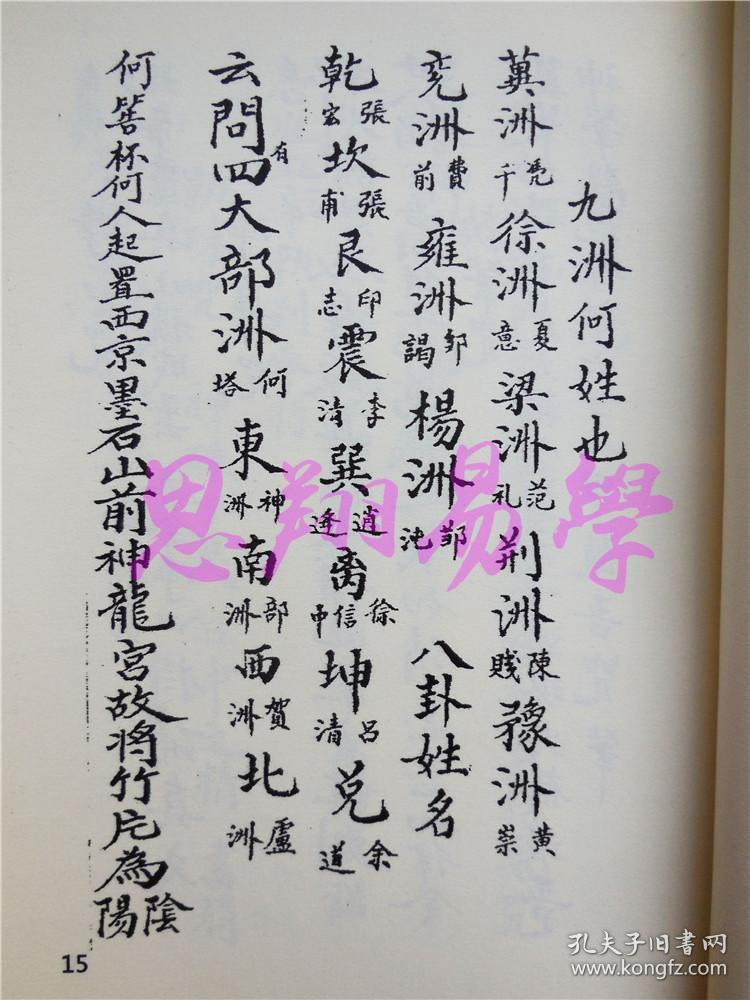 九洲何姓也
兾洲凭千徐洲夏意梁洲范礼荆洲陳賤豫洲黄崇
兖洲費前雍洲邹謁楊洲邹沌 八卦姓名
乾張宏坎張甫艮印志震李清巽逍逢离徐信申坤吕清兑余道
云問四有大部洲何塔東神洲南部洲西賀洲北盧洲
何筶杯何人起置西京墨石山前神龍宫故將竹片為陰陽
思翔易学
15
孔夫子旧書网
www.kongfz.com